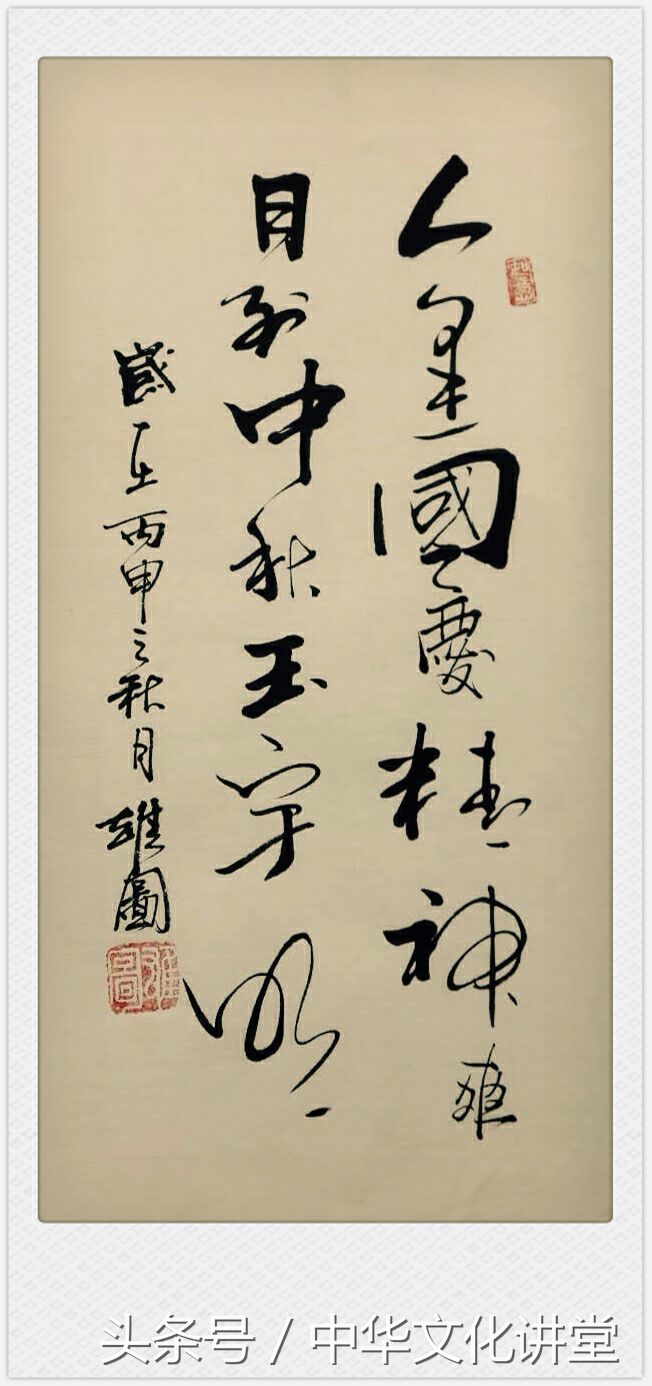 人逢國慶精神爽
月到中秋玉宇明
歲在丙申之秋月雄圖
头条号 / 中华文化讲堂